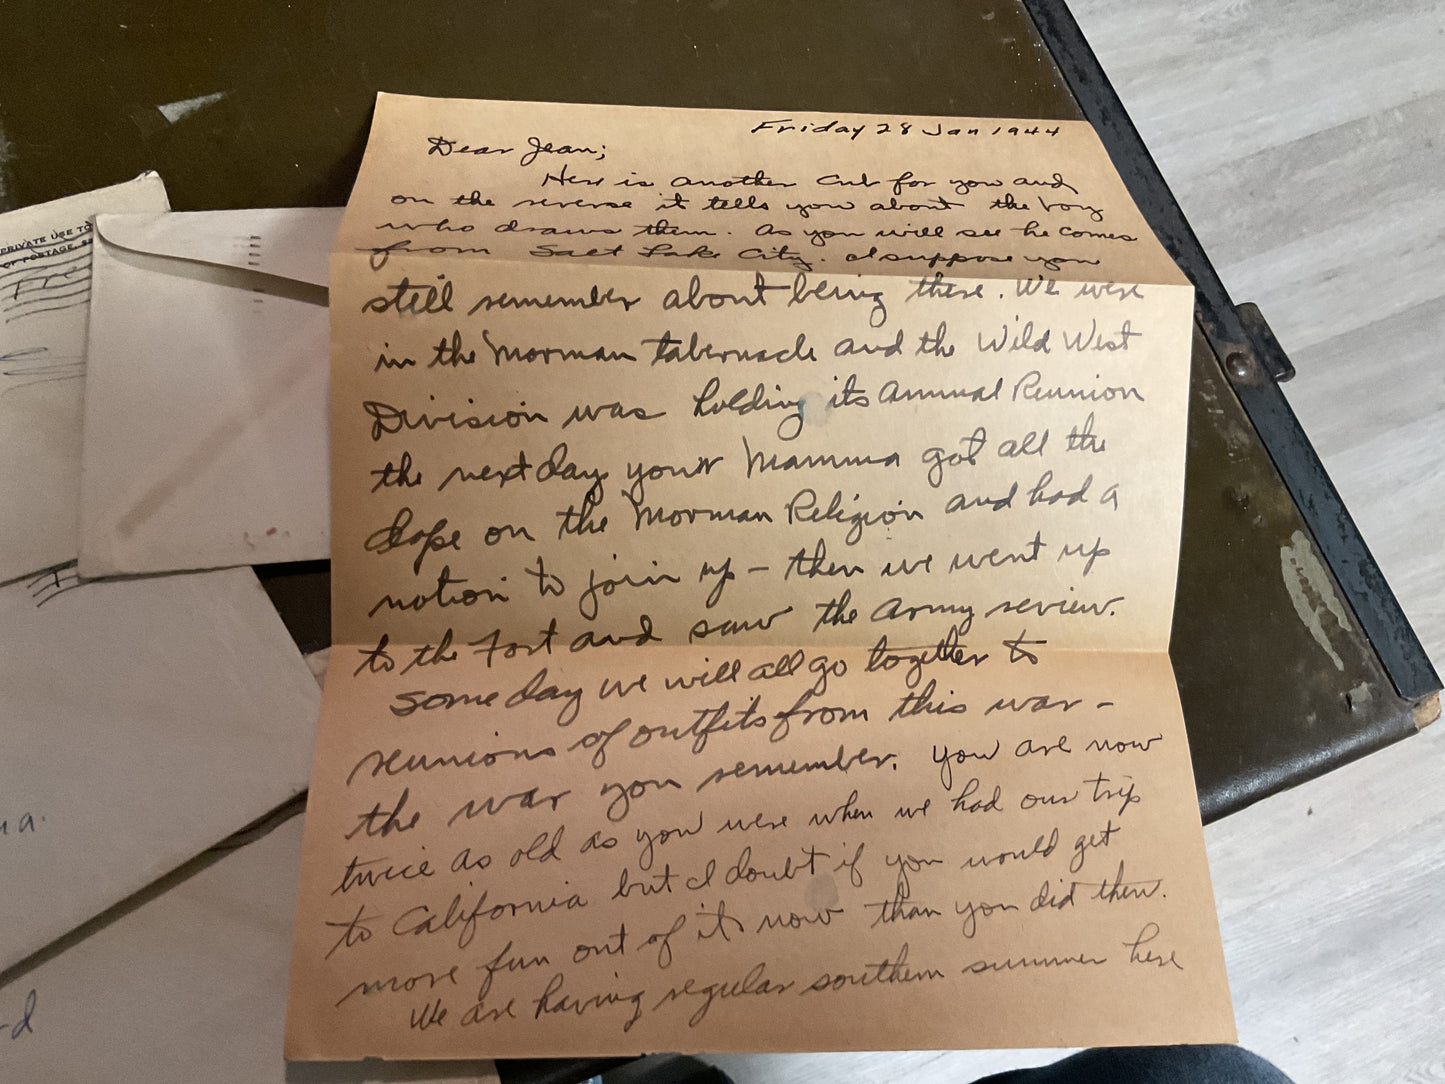 Friday 28 Jan 1944
Dear Jean;
Here is another cub for you and
on the reverse it tells you about the boy
who draws them. As you will see he comes
from Salt Lake City. I suppose you
still remember about being there. We were
in the Morman tabernacle and the Wild West
Division was holding its Annual Reunion
the next day your Mamma got all the
dope on the Morman Religion and had a
notion to join up - then we went up
to the Fort and saw the Army review.
Some day we will all go together to
reunions of outfits from this war -
the war you remember. You are now
twice as old as you were when we had our trip
to California but I doubt if you would get
more fun out of it now than you did then.
We are having regular southern summer here
PRIVATE USE TO
OF POSTAGE, $
a.
rd